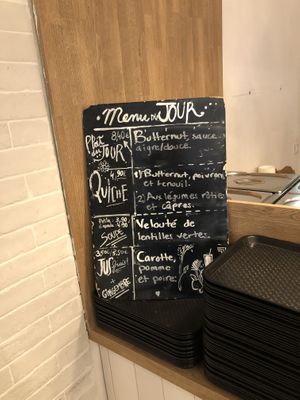 Menu du JOUR
Plat du JOUR 8,40€
Butternut, sauce
aigre/douce.
QUICHE 4,90€
1) Butternut, poivrons
et fenouil.
2) Aux légumes rôtis
et câpres.
SOUPE
Velouté de
lentilles vertes.
JUS
+ GINGEMBRE
Carotte,
pomme
et poire.